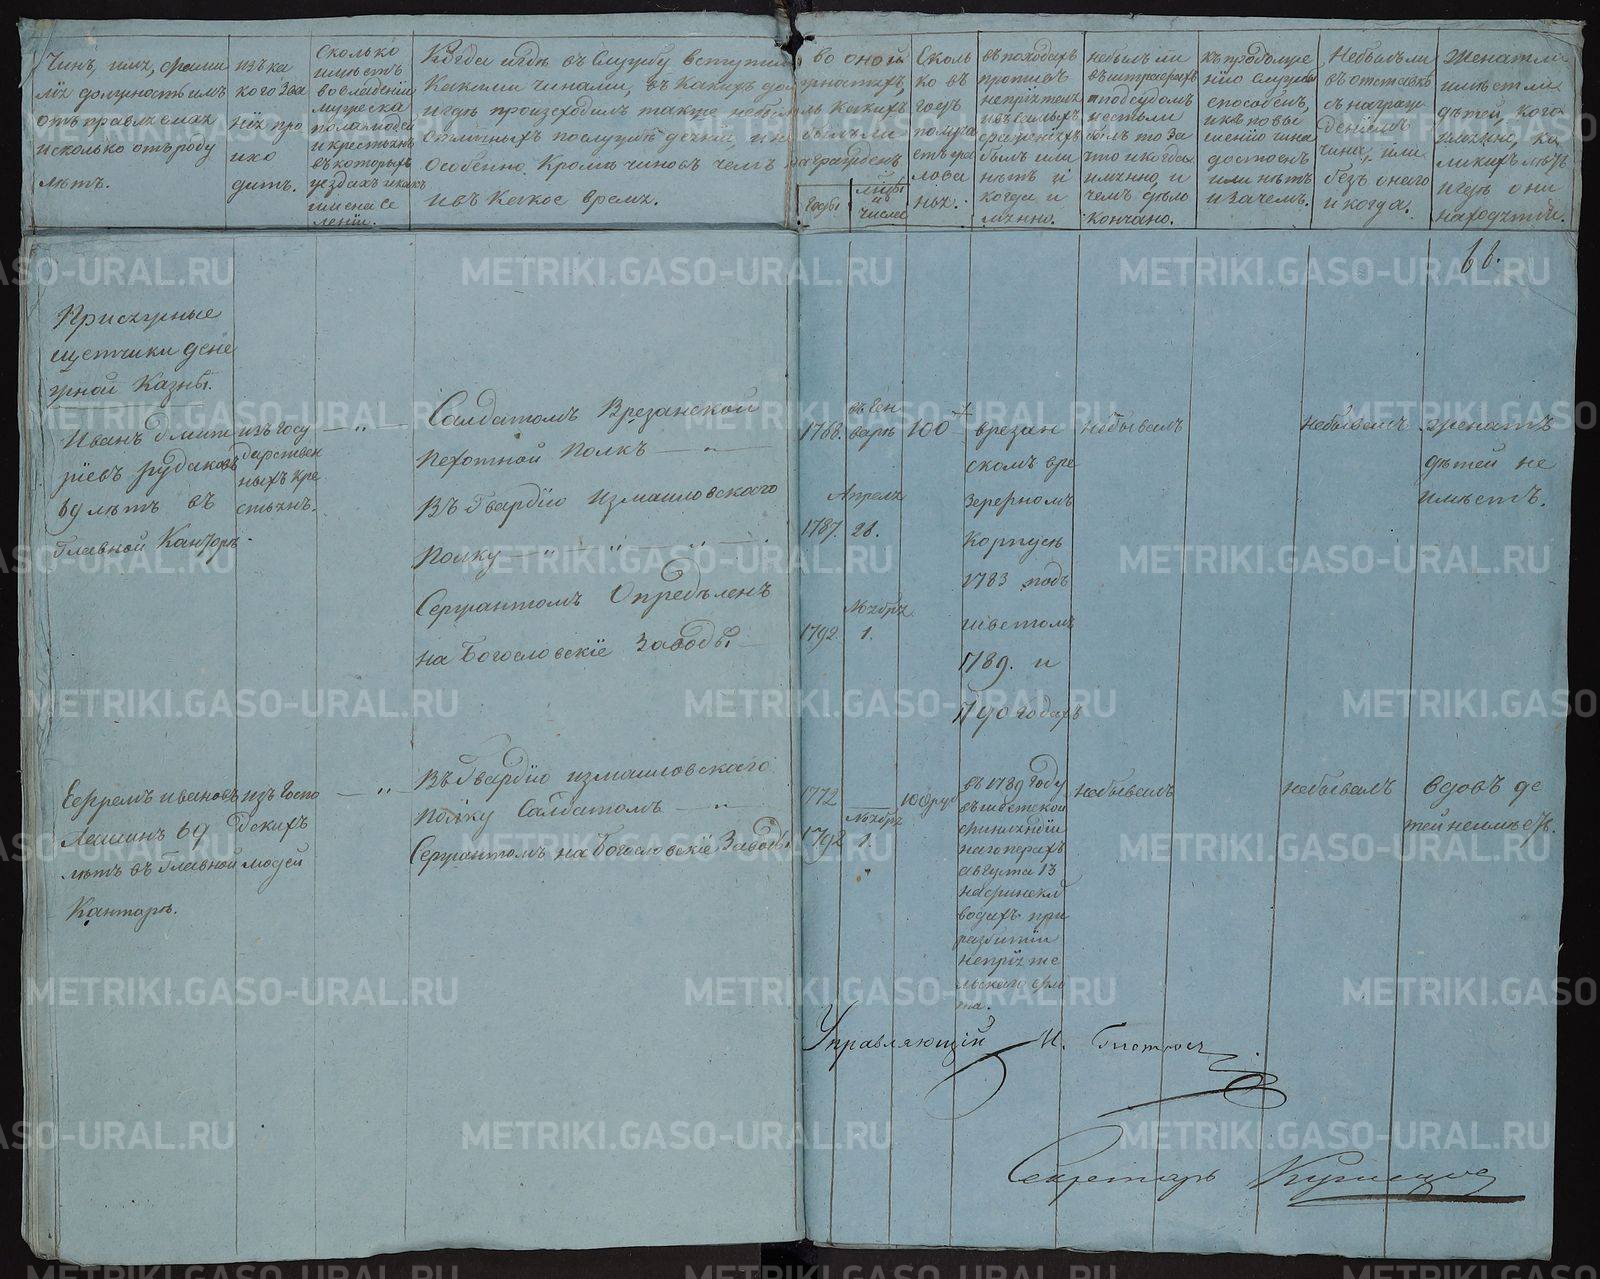 Чинъ, имя, фами
лія должность имъ
отъправляемая
и сколько отъ роду
лѣтъ.
изъ ка
кого зва
нія про
ихо
дитъ.
Сколько
имѣетъ
во владеніи
мужеска
пола людей
и крестьянъ
въ которыхъ
уездахъ и какъ
имена се
леніи.
Когда и гдѣ въ Службу вступи
Какими чинами, въ какихъ до
и где происходилъ также небы
Отличныхъ по службѣ деяній, и н
Особенно. Кроме чиновъ чемъ
и въ Какое время.
во оной
ль какихъ
былъ ли
награжденъ
Годы
мцы
и
числа
Сколь
ко въ
годъ
получа
етъ жа
лова
нья.
въ походахъ
противъ
непріятеля
и въ самыхъ
сраженіяхъ
былъ или
нѣтъ и
когда и
мянно.
небылъ ли
въ штрафахъ
и подъ судомъ
и естьли
былъ то за
что и когда
имянно, и
чемъ дѣло
кончано.
къ продолже
нію службы
способенъ,
и къ повы
шенію чина
достоенъ
или нѣтъ
и зачемъ.
Небылъ ли
въ отставкѣ
съ награж
деніемъ
чина, или
безъ онаго
и когда.
Женатъ ли
имѣетъ ли
дѣтей, кого
имянно, ка
кихъ лѣтъ
и гдѣ они
находятся.
Присяжные
щетчики дене
жной Казны.
Иванъ Дмит
ріевъ рудаковъ
69 лѣтъ въ
Главной Канторѣ.
изъ Госу
дарствен
ныхъ кре
стьянъ.
Салдатомъ Врезанской
пехотной полкъ
Въ Гвардію Измаиловскаго
полку
Сержантомъ Опредѣленъ
на Богословскіе Заводы
1768.
въ Ген
варѣ
1787.
Апреля
28.
1792.
Ноября
1.
100
врезан
скомъ вре
зерерномъ
Корпусѣ
1783 подъ
шветомъ
1789. и
1790 годахъ
небывалъ
небывалъ
женатъ
дѣтей не
имѣетъ.
Ефремъ ивановъ
Лешинъ 69
лѣтъ въ Главной
Канторѣ.
изъ Госпо
дскихъ
людей
Въ Гвардію измаиловскаго
полку Салдатомъ
Сержантомъ на Богословскіе Заводы
1772
1792
Ноября
1.
100 руб
въ 1789 году
въ шветской
финляндіи
на галерахъ
августа 13
на финскл
водахъ при
разбитіи
непріяте
льскаго фло
та.
небывалъ
небывалъ
вдовъ де
тей неимѣетъ.
Управляющій И.
Секретарь